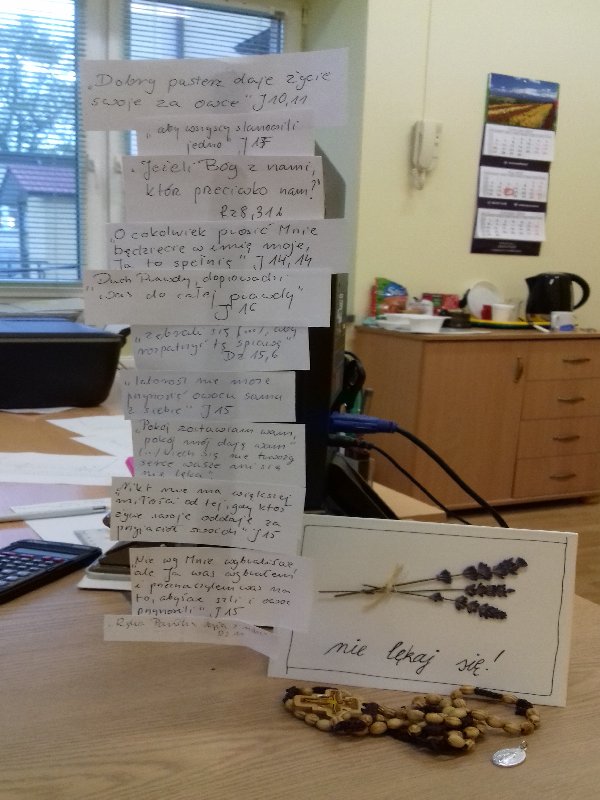 „Dobry pasterz daje życie
swoje za owce" J 10,11
„aby wszyscy stanowili
jedno" J 17
„Jeżeli Bóg z nami,
któż przeciwko nam?"
Rz 8,31b
„O cokolwiek prosić Mnie
będziecie w imię moje,
Ja to spełnię" J 14,14
„Duch Prawdy, doprowadzi
was do całej prawdy"
J 16
„zebrali się [...], aby
rozpatrzyć tę sprawę"
Dz 15,6
„Latorośl nie może
przynosić owocu sama
z siebie" J 15
„Pokój zostawiam wam,
pokój mój daję wam"
niech się nie trwoży
serce wasze ani się
nie lęka"
„Nikt nie ma większej
miłości od tej, gdy ktoś
życie swoje oddaje za
przyjaciół swoich" J 15
„Nie wy Mnie wybraliście
ale Ja was wybrałem
i przeznaczyłem was na
to, abyście szli i owoc
przynosili" J 15
„Ręka Pańska była z nimi"
nie lękaj się!